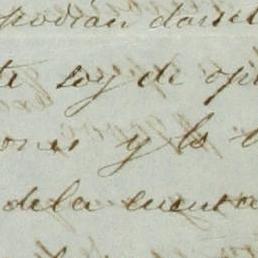 podian darsel
te soy de opi
ones y lo
dela cuenta